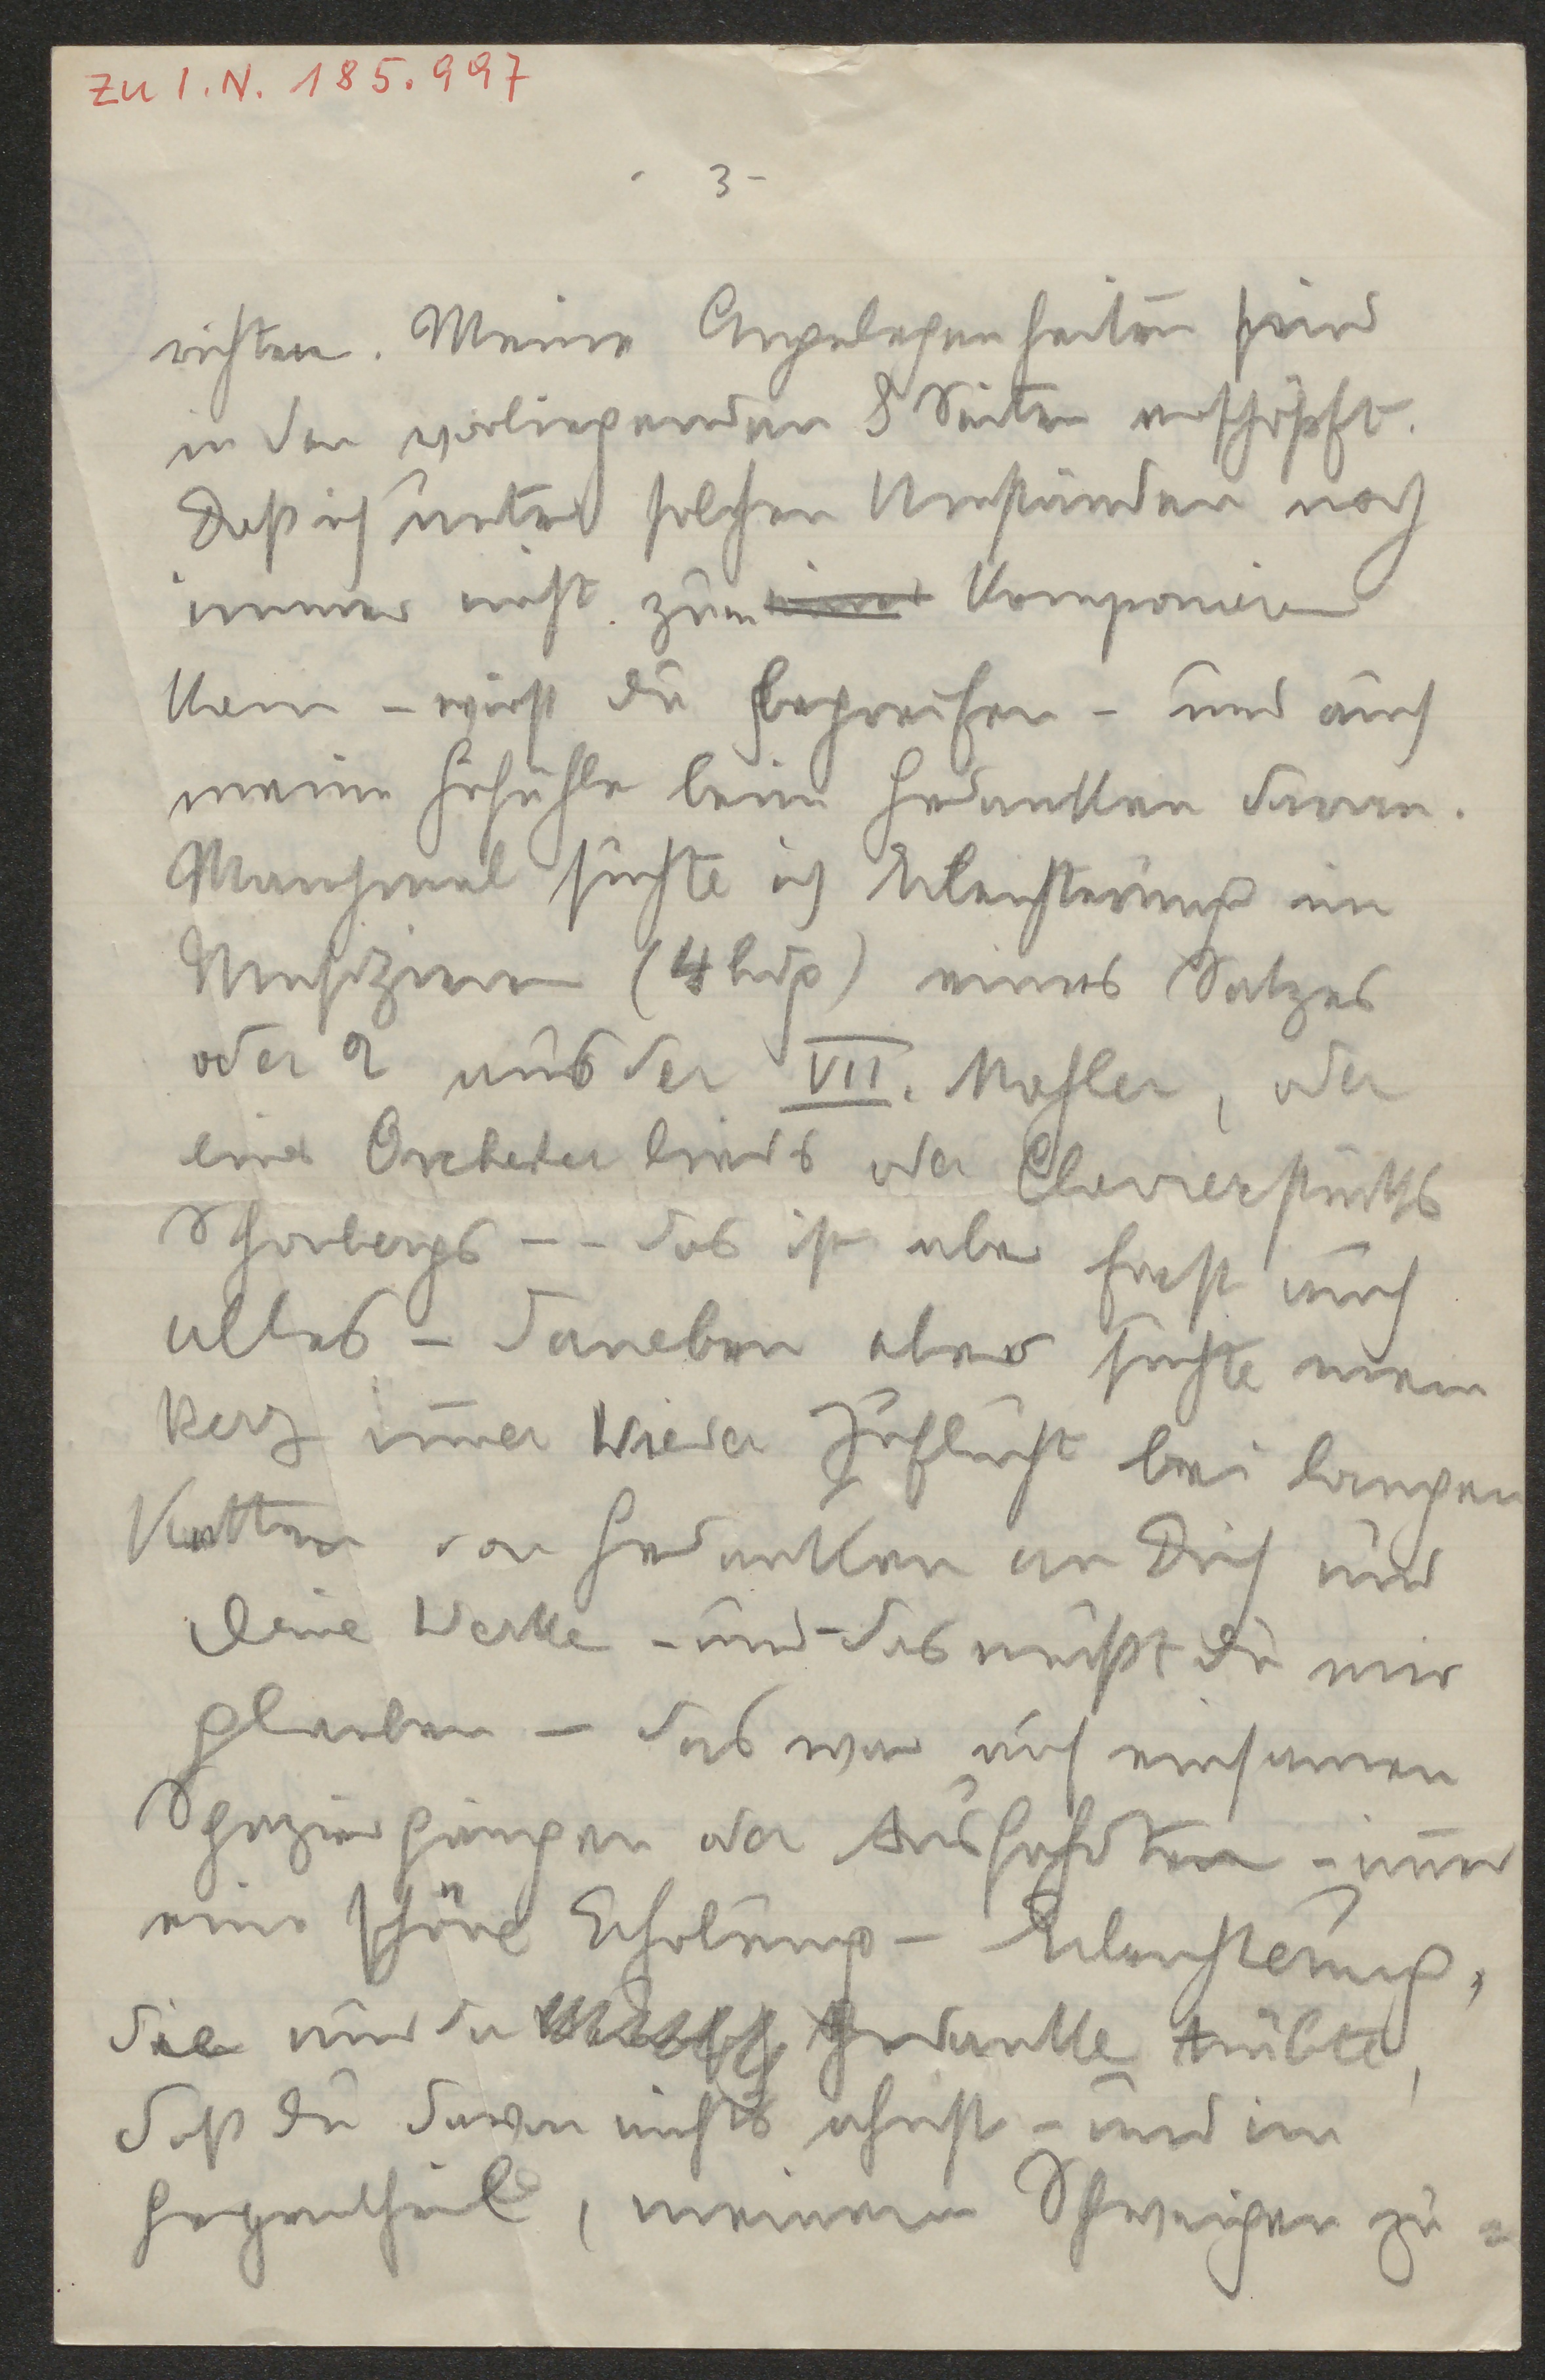 zu I.N. 185.997
- 3 -
richten. Meine Angelegenheiten sind
in den vorliegenden 8 Seiten erschöpft.
Daß ich unter solchen Umständen noch
immer nicht zum Komponieren
kam – wirst Du begreifen – und auch
meine Gefühle beim Gedanken daran.
Manchmal suchte ich Erleichterung im
Musizieren (4 hdg) eines Satzes
oder 2 aus der VII. Mahler, oder
eines Orchesterlieds oder Clavierstücks
Schönbergs – – das ist aber fast auch
alles – Daneben aber suchte mein
Herz im̅er wieder Zuflucht bei langen
Ketten von Gedanken an Dich und
Deine Werke – und – das mußt Du mir
glauben – das war auf einsamen
Spaziergängen oder Ausfahrten – im̅er
eine schöne Erholung – Erleichterung,
die nur der Gedanke trübte,
daß Du davon nichts ahnst – und im
Gegentheil, meinem Schweigen zu=